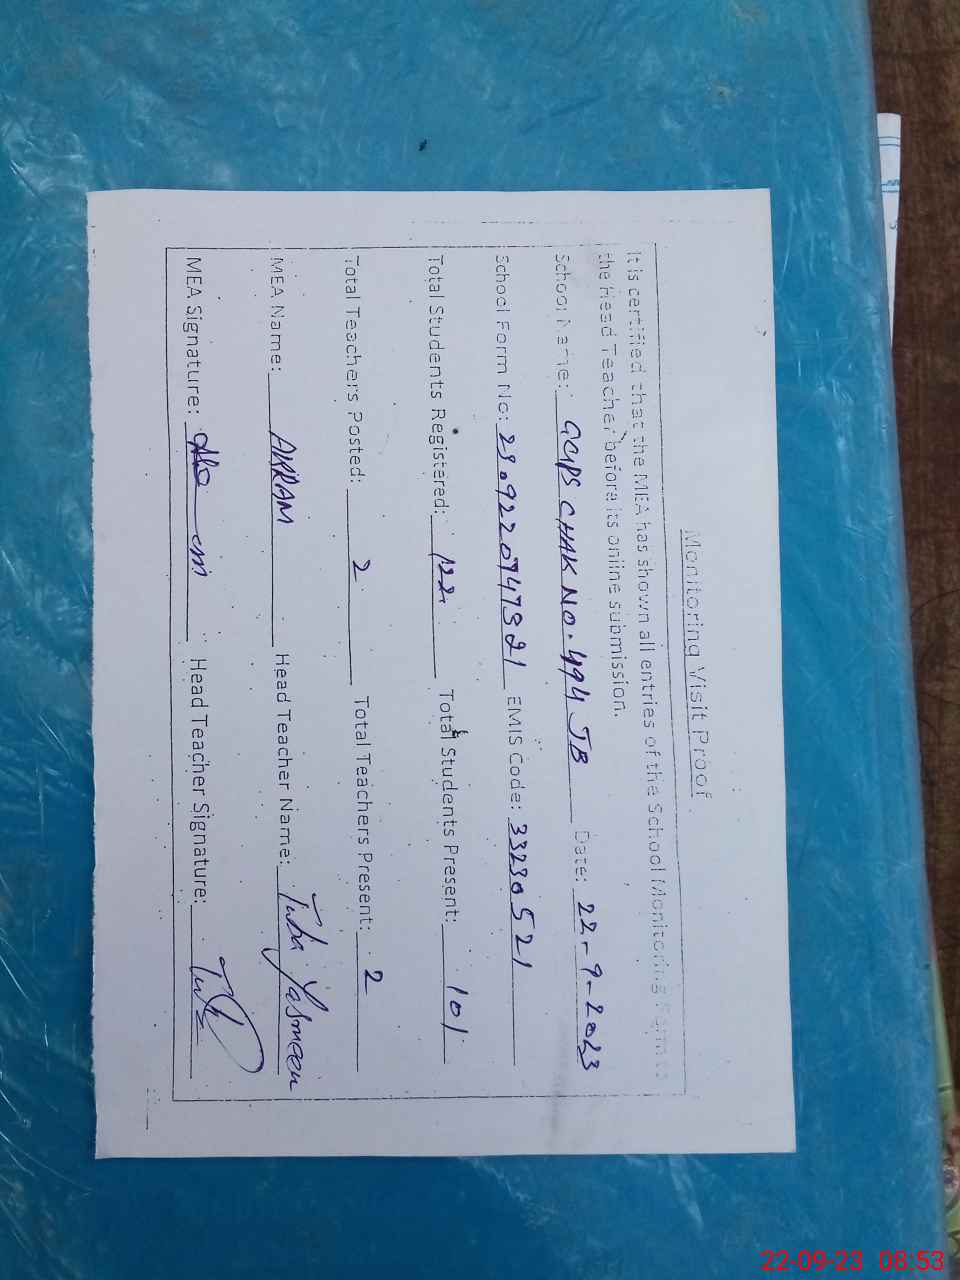 Monitoring Visit Proof
It is certified that the MEA has shown all entries of the School Monitoring Form to
the Head Teacher before its online submission.
School Name: GGPS CHAK NO. 494 JB Date: 22-9-2023
School Form No: 2309220747321 EMIS Code: 33230521
Total Students Registered: 122 Total Students Present: 101
Total Teachers Posted: 2 Total Teachers Present: 2
MEA Name: AKRAM Head Teacher Name: Tuba Yasmeen
MEA Signature: Head Teacher Signature:
22-09-23 08:53